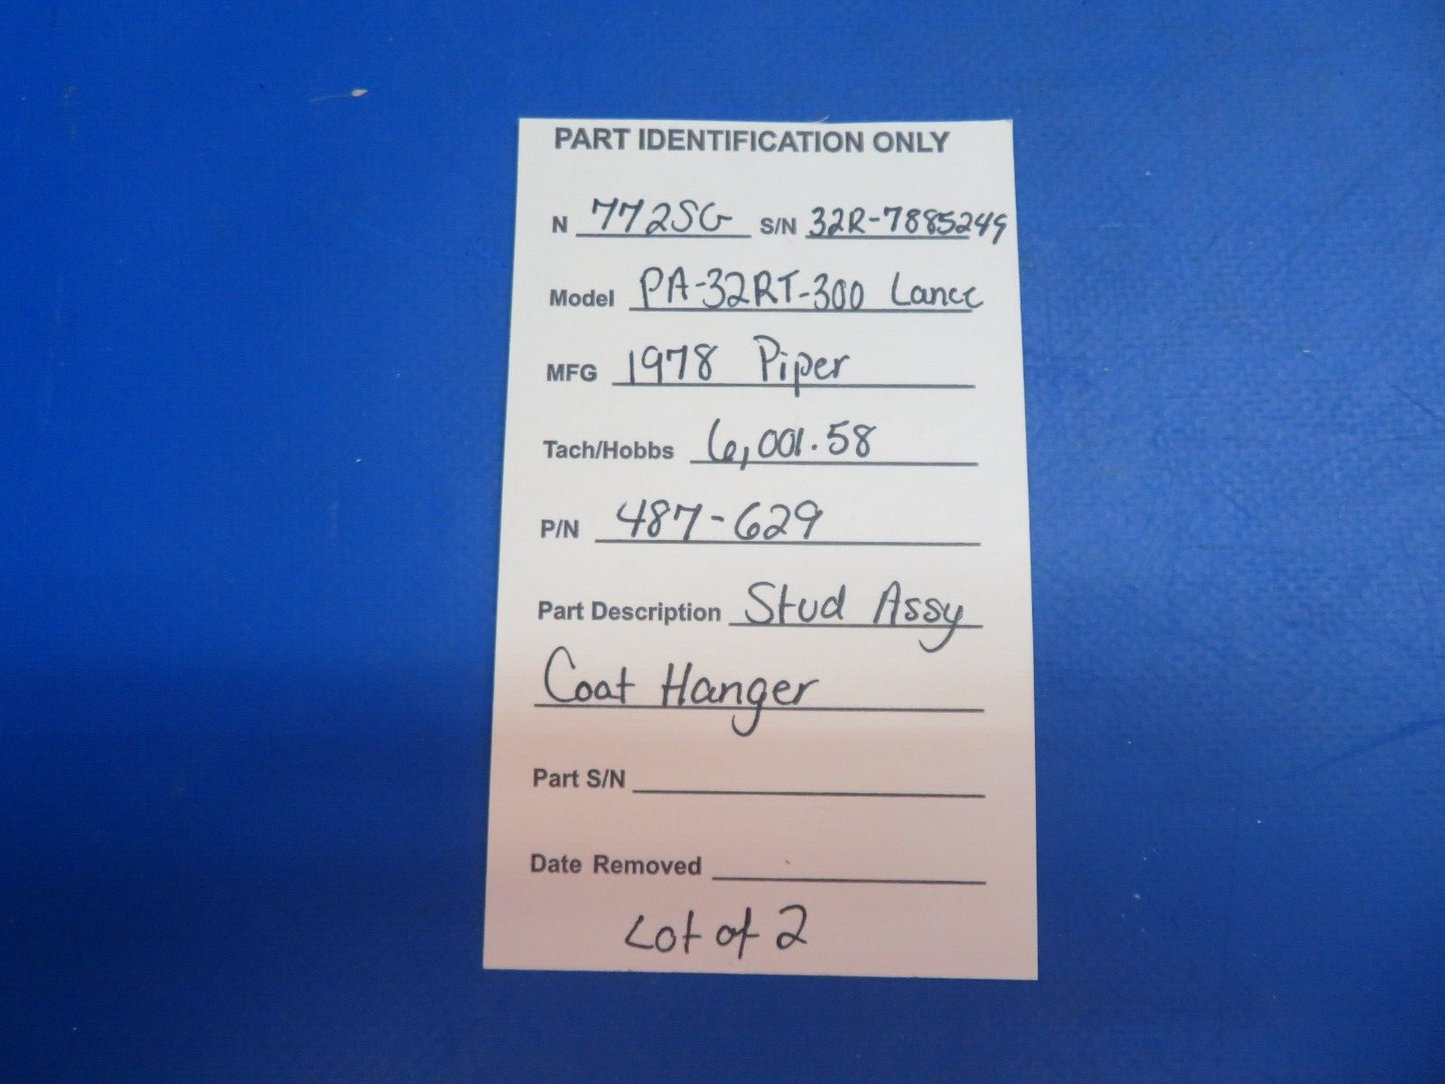 PART IDENTIFICATION ONLY
N 772SG S/N 32R-7885249
Model PA-32RT-300 Lance
MFG 1978 Piper
Tach/Hobbs 6,001.58
P/N 487-629
Part Description Stud Assy
Coat Hanger
Part S/N
Date Removed
Lot of 2